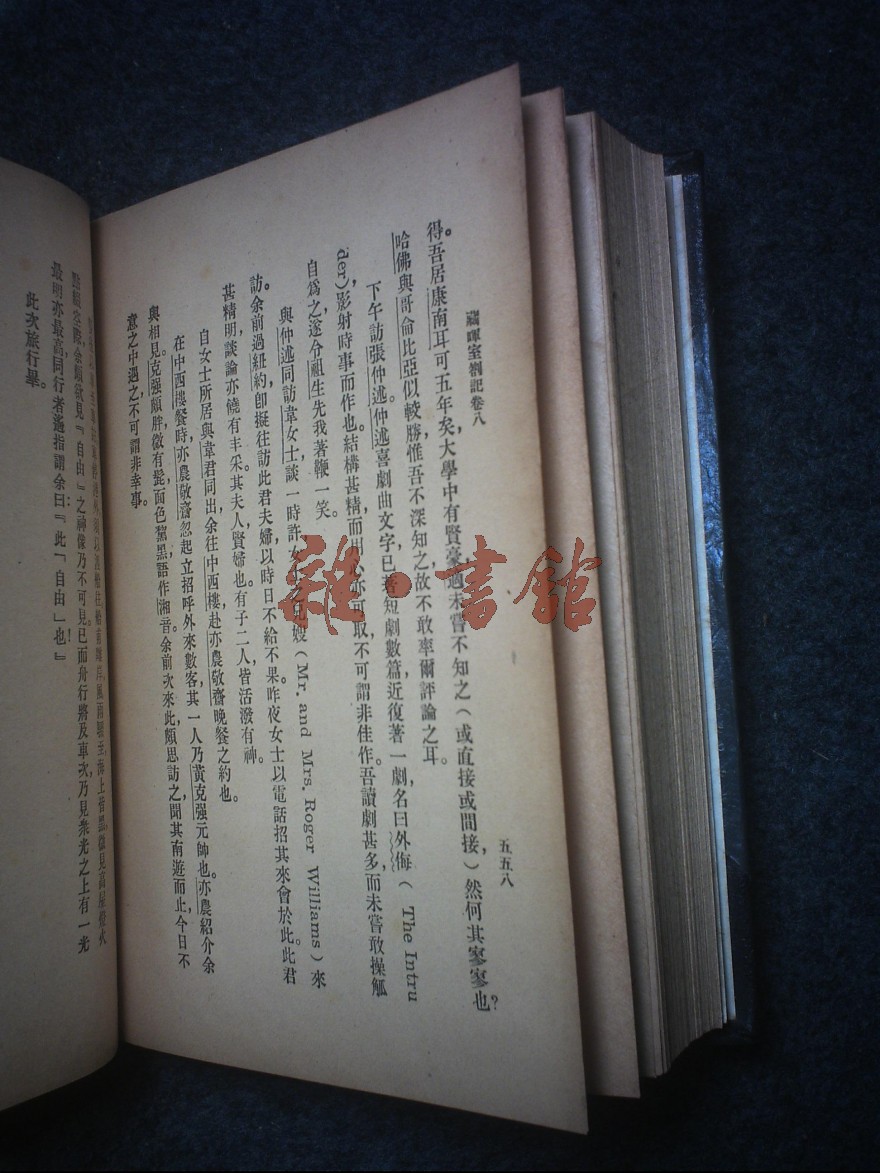 藏暉室劄記卷八
五五八
得。吾居康南耳可五年矣，大學中有賢豪適未嘗不知之（或直接或間接，）然何其寥寥也？
哈佛與哥侖比亞似較勝惟吾不深知之故不敢率爾評論之耳。
下午訪張仲述。仲述喜劇曲文字已著短劇數篇近復著一劇名曰外侮（The Intru
der）影射時事而作也。結構甚精而用心亦可取不可謂非佳作。吾讀劇甚多，而未嘗敢操觚
自爲之遂令祖生先我著鞭一笑。
與仲述同訪韋女士談一時許女士之兄嫂（Mr. and Mrs. Roger Williams）來
訪。余前過紐約卽擬往訪此君夫婦以時日不給不果。昨夜女士以電話招其來會於此。此君
甚精明談論亦饒有丰采。其夫人賢婦也。有子二人皆活潑有神。
自女士所居與韋君同出余往中西樓赴亦農敬齋晚餐之約也。
在中西樓餐時亦農敬齋忽起立招呼外來數客其一人乃黃克強元帥也。亦農紹介余
與相見。克強頗胖微有髭面色黧黑語作湘音余前次來此頗思訪之聞其南遊而止今日不
意之中遇之不可謂非幸事。
船甫離岸，風雨驟至海上皆黑微見高屋燈火
點綴空際，余頗欲見『自由』之神像乃不可見。已而舟行將及車次，乃見衆光之上有一光
最明亦最高，同行者遙指謂余曰：『此「自由」也！』
此次旅行畢。
雜·書館